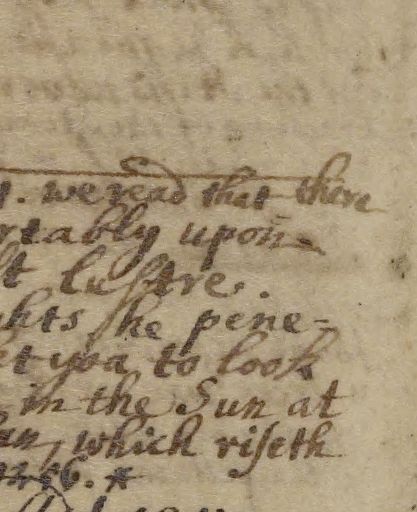 we read that there
rtably upon
lustre.
ghts she pene-
to look
in the Sun at
an, which riseth